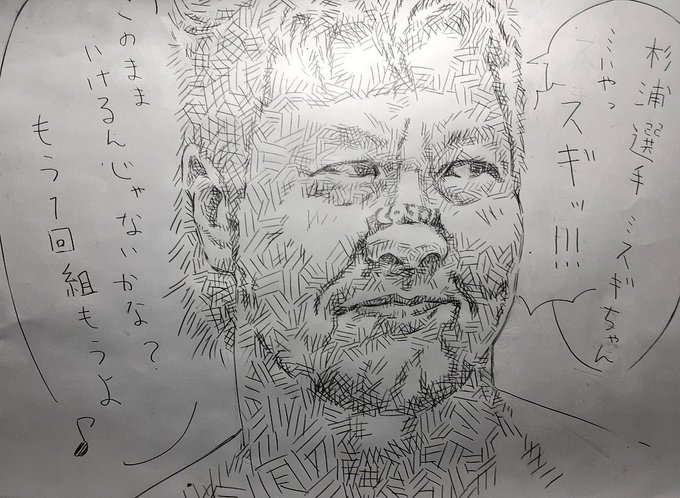 杉浦選手…スギちゃん
…いやっ
スギッ!!!
このまま
いけるんじゃないかな？
もう1回組もうよ♪